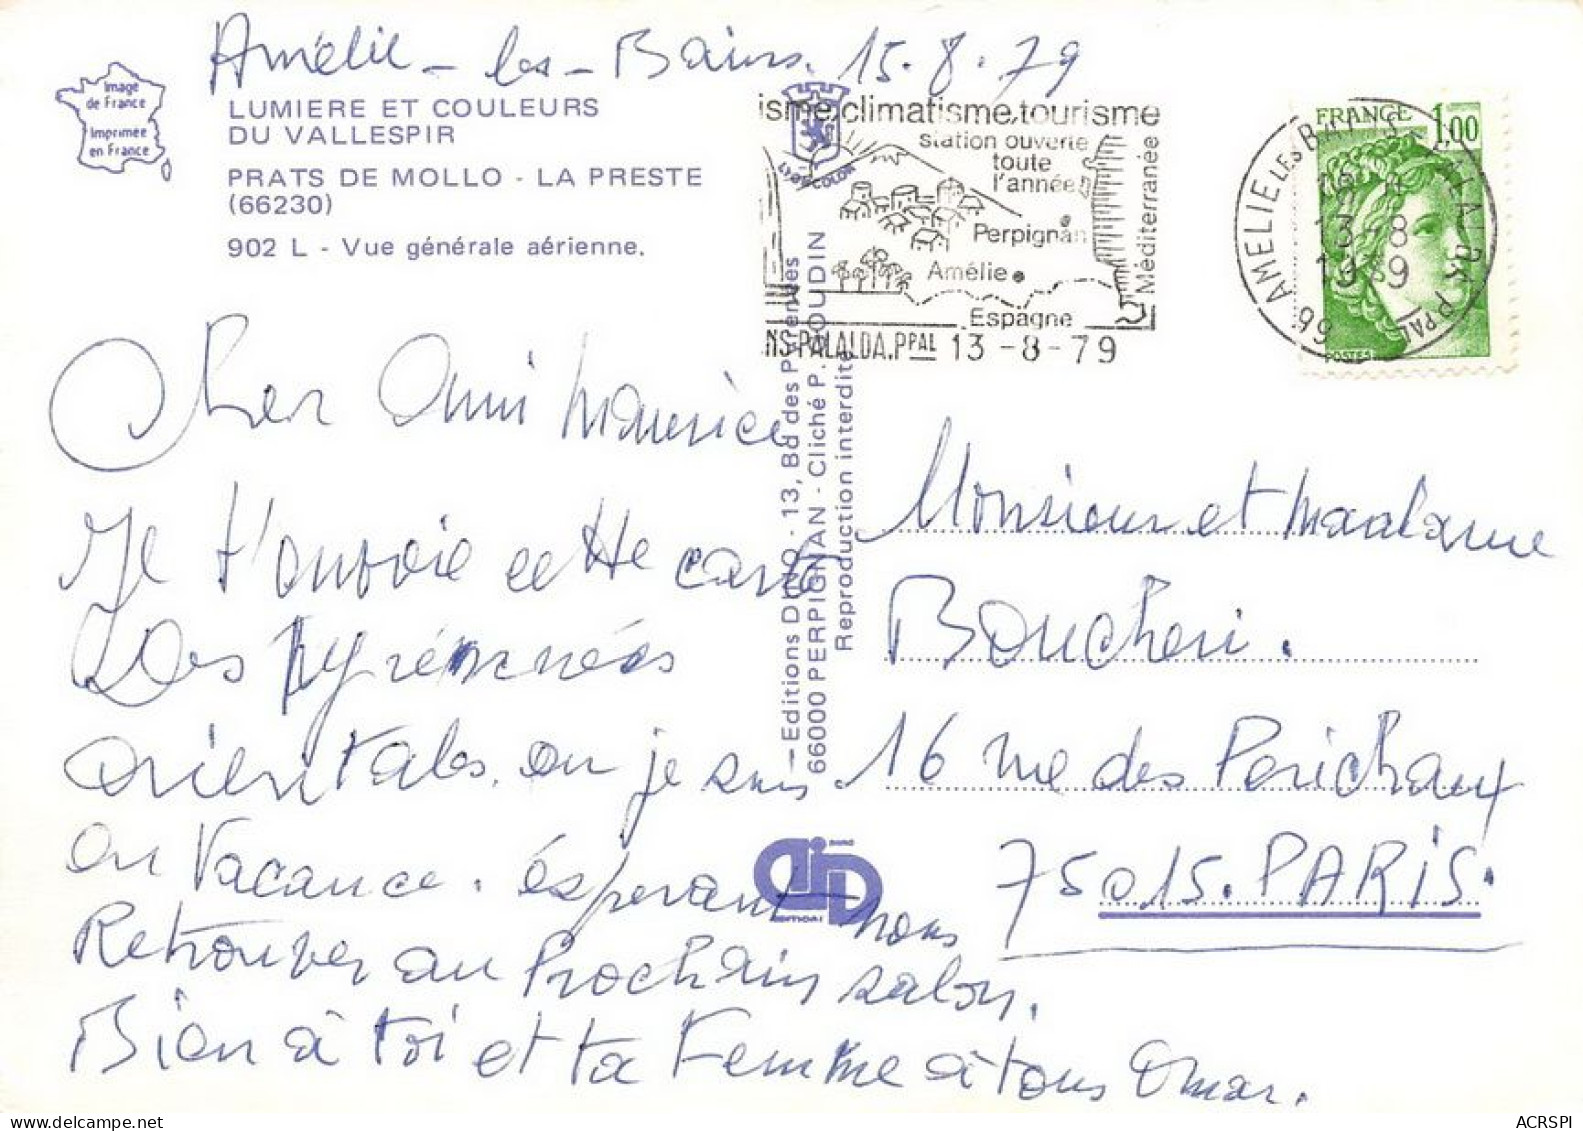 Amélie-les-Bains. 15.8.79
Image
de France
Imprimée
en France
LUMIERE ET COULEURS
DU VALLESPIR
PRATS DE MOLLO - LA PRESTE
(66230)
902 L - Vue générale aérienne.
isme, climatisme, tourisme
station ouverte
toute
l'année
Perpignan
Amélie
Espagne
Méditerranée
NS-PALALDA.PPAL 13-8-79
LYON COLOR
FRANCE 1,00
POSTES
66 AMELIE LES BAINS-PALALDA PPAL
13-8
Cher Ami Maurice
Je t'envoie cette carte
Des Pyrénnées
orientales. ou je suis
en Vacance. ésperant nous
Retrouver au Prochain salon.
Bien à toi et ta Femme à tous Omar.
Editions DINO - 13, Bd des Pyrénées
66000 PERPIGNAN - Cliché P. BOUDIN
Reproduction interdite
DINO
EDITIONS
Monsieur et Madame
Boucheri.
16 rue des Perichaux
75015. PARIS.
ACRSPI